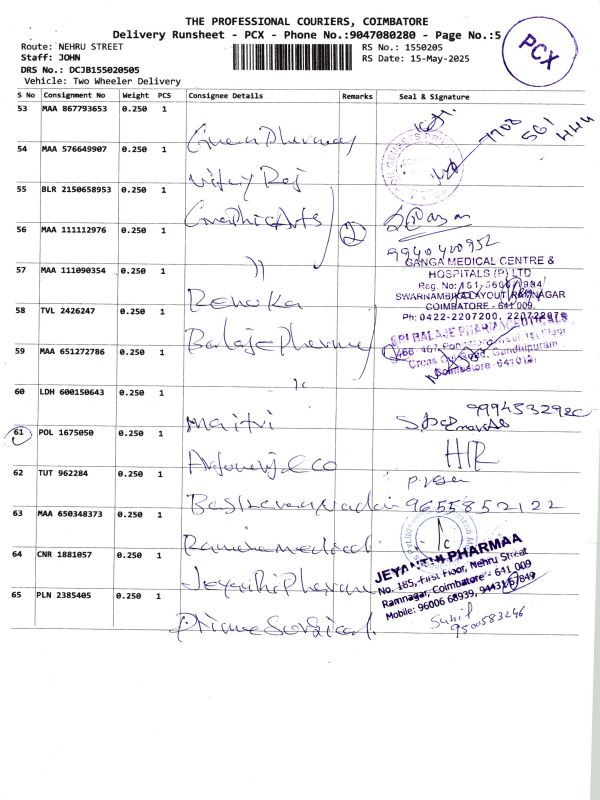 THE PROFESSIONAL COURIERS, COIMBATORE
Delivery Runsheet - PCX - Phone No.:9047080280 - Page No.:5
PCX
Route: NEHRU STREET
Staff: JOHN
DRS No.: DCJB155020505
Vehicle: Two Wheeler Delivery
RS No.: 1550205
RS Date: 15-May-2025
S No Consignment No Weight PCS Consignee Details Remarks Seal & Signature
53 MAA 867793653 0.250 1
7708
561
444
54 MAA 576649907 0.250 1
55 BLR 2150658953 0.250 1 Vijay Raj
56 MAA 111112976 0.250 1 Graphic Arts 2
9940400952
57 MAA 111090354 0.250 1 ))
GANGA MEDICAL CENTRE &
HOSPITALS (P) LTD
SWARNAMBIKA LAYOUT, RAMNAGAR
COIMBATORE - 641 009.
Ph: 0422-2207200, 22072207
58 TVL 2426247 0.250 1 Renuka
SRI BALAJE PHARMACEUTICALS
Cross Cut Road, Gandhipuram
Coimbatore - 641012.
59 MAA 651272786 0.250 1 Balaje Pharma
60 LDH 600150643 0.250 1
61 POL 1675050 0.250 1 Maitri
62 TUT 962284 0.250 1
63 MAA 650348373 0.250 1 9655852122
64 CNR 1881057 0.250 1 Medical
JEYANTHI PHARMAA
No. 185, First Floor, Nehru Street
Ramnagar, Coimbatore - 641 009
Mobile: 96006 68939,
65 PLN 2385405 0.250 1 Jeyanthi Pharma
Prime Surgical
Sunil
9500583246